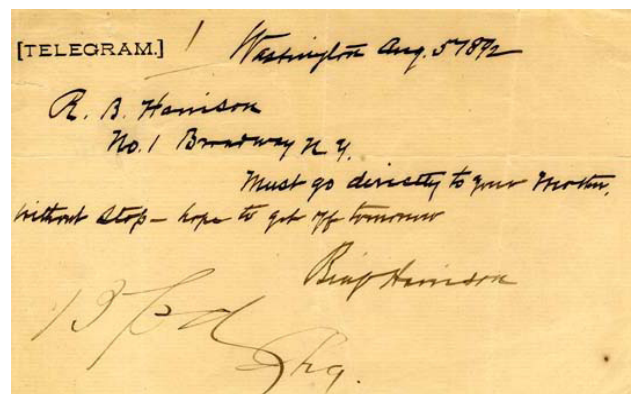 [TELEGRAM.]
Washington Aug. 5 1892
R. B. Harrison
No. 1 Broadway N Y.
Must go directly to your Mother,
without stop - hope to get off tomorrow
Benj Harrison
13 pd